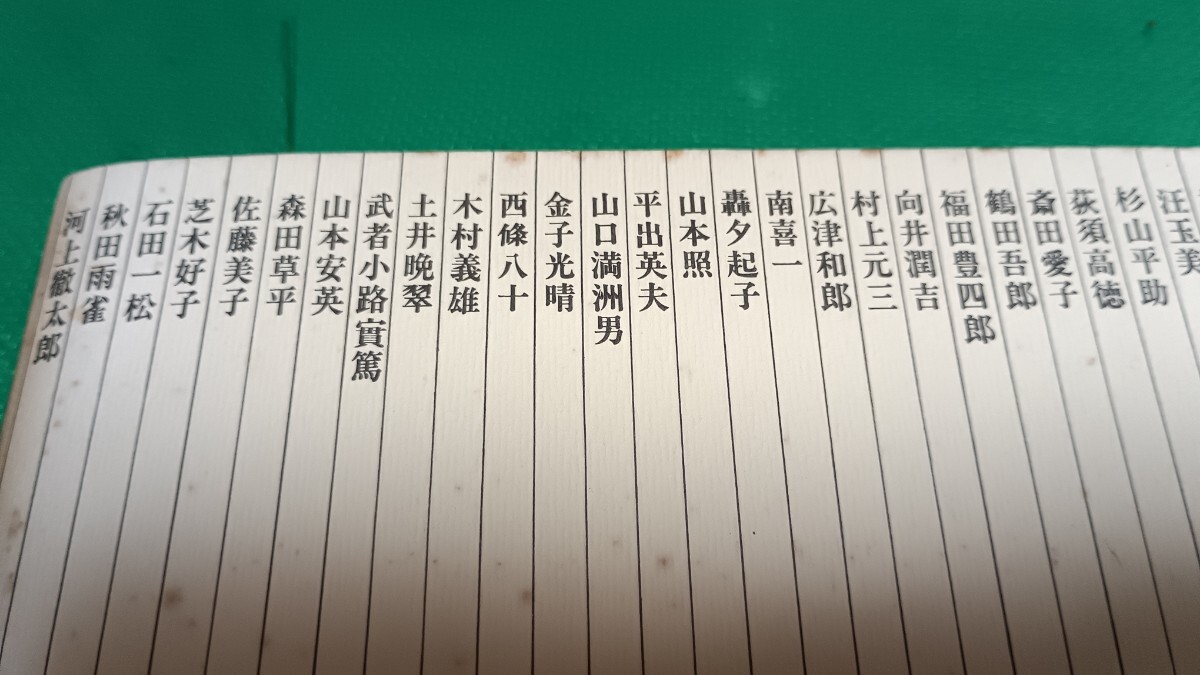 汪玉美
杉山平助
荻須高徳
斎田愛子
鶴田吾郎
福田豊四郎
向井潤吉
村上元三
広津和郎
南喜一
轟夕起子
山本照
平出英夫
山口満洲男
金子光晴
西條八十
木村義雄
土井晩翠
武者小路實篤
山本安英
森田草平
佐藤美子
芝木好子
石田一松
秋田雨雀
河上徹太郎